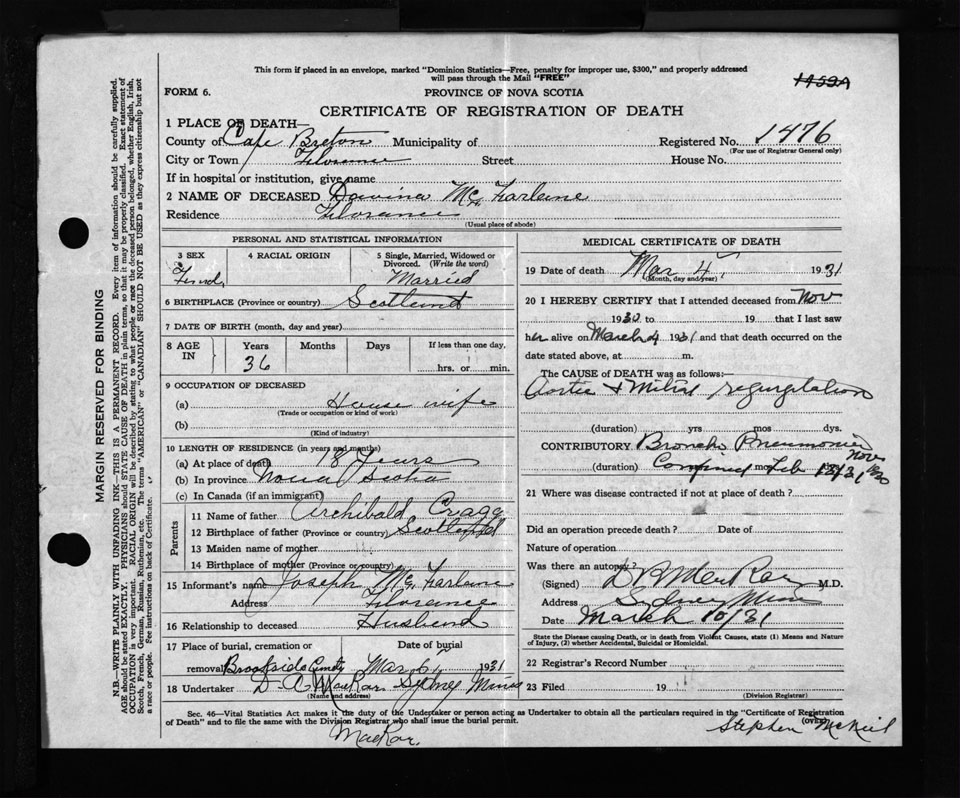 This form if placed in an envelope, marked "Dominion Statistics—Free, penalty for improper use, $300," and properly addressed
will pass through the Mail "FREE"
1459A
FORM 6.
PROVINCE OF NOVA SCOTIA
CERTIFICATE OF REGISTRATION OF DEATH
1 PLACE OF DEATH—
County of Cape Breton Municipality of Registered No. 1476
(For use of Registrar General only)
City or Town Florence Street House No.
If in hospital or institution, give name
2 NAME OF DECEASED Davina McFarlane
Residence Florance
(Usual place of abode)
PERSONAL AND STATISTICAL INFORMATION
3 SEX 4 RACIAL ORIGIN 5 Single, Married, Widowed or Divorced. (Write the word)
Female Married
6 BIRTHPLACE (Province or country) Scotland
7 DATE OF BIRTH (month, day and year)
8 AGE IN Years Months Days If less than one day,
36 hrs. or min.
9 OCCUPATION OF DECEASED
(a) House wife
(Trade or occupation or kind of work)
(b)
(Kind of industry)
10 LENGTH OF RESIDENCE (in years and months)
(a) At place of death 18 Years
(b) In province Nova Scotia
(c) In Canada (if an immigrant)
Parents
11 Name of father Archibald Cragg
12 Birthplace of father (Province or country) Scotland
13 Maiden name of mother
14 Birthplace of mother (Province or country)
15 Informant's name Joseph McFarlane
Address Florance
16 Relationship to deceased Husband
17 Place of burial, cremation or removal Date of burial
Brookside Mar 6 1931
18 Undertaker D. A. MacRae Sydney Mines
(Name and address)
MEDICAL CERTIFICATE OF DEATH
19 Date of death Mar 4 1931
(Month, day and year)
20 I HEREBY CERTIFY that I attended deceased from Nov
1930 to 19 that I last saw
her alive on March 4 1931 and that death occurred on the
date stated above, at m.
The CAUSE of DEATH was as follows:—
Aortic & Mitral regurgitation
(duration) yrs mos dys.
CONTRIBUTORY Broncho Pneumonia
Nov 1930
(duration) mo Feb
21 Where was disease contracted if not at place of death?
Did an operation precede death? Date of
Nature of operation
Was there an autopsy?
(Signed) M.D.
Address Sydney Mines
Date March 10/31
State the Disease causing Death, or in death from Violent Causes, state (1) Means and Nature
of Injury, (2) whether Accidental, Suicidal or Homicidal.
22 Registrar's Record Number
23 Filed 19
(Division Registrar)
Sec. 46—Vital Statistics Act makes it the duty of the Undertaker or person acting as Undertaker to obtain all the particulars required in the "Certificate of Registration
of Death" and to file the same with the Division Registrar who shall issue the burial permit. (OVER)
MacRae.
Stephen McNeil
MARGIN RESERVED FOR BINDING
N.B.—WRITE PLAINLY WITH UNFADING INK—THIS IS A PERMANENT RECORD. Every item of information should be carefully supplied.
AGE should be stated EXACTLY. PHYSICIANS should STATE CAUSE OF DEATH in plain terms, so that it may be properly classified. Exact statement of
OCCUPATION is very important. RACIAL ORIGIN will be described by stating to what people or race the deceased person belonged, whether English, Irish,
Scotch, French, German, Russian, Ruthenian, etc. The terms "AMERICAN" or "CANADIAN" SHOULD NOT BE USED as they express citizenship but not
a race or people. See instructions on back of Certificate.